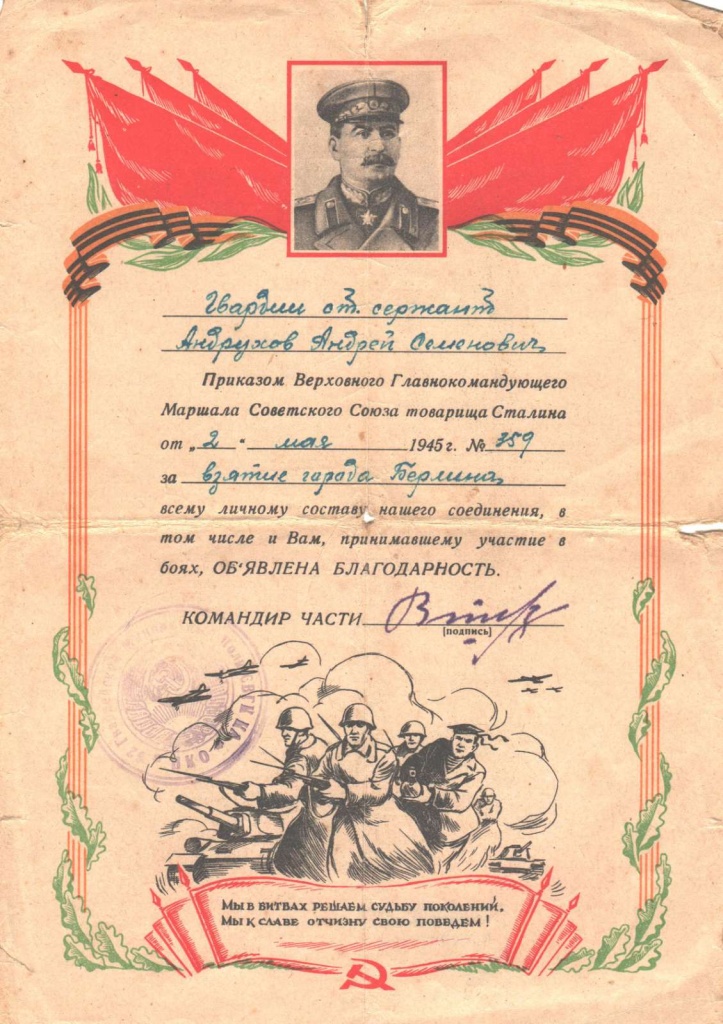 Гвардии ст. сержант
Андрухов Андрей Семенович
Приказом Верховного Главнокомандующего
Маршала Советского Союза товарища Сталина
от „2“ мая 1945 г. № 359
за взятие города Берлина
всему личному составу нашего соединения, в
том числе и Вам, принимавшему участие в
боях, ОБ'ЯВЛЕНА БЛАГОДАРНОСТЬ.
КОМАНДИР ЧАСТИ
(подпись)
Мы в битвах решаем судьбу поколений,
Мы к славе отчизну свою поведем!